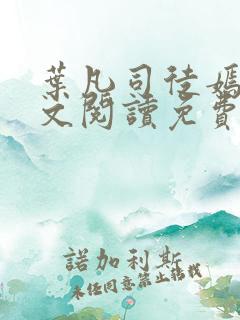 葉凡司徒嫣
文閱讀免費
諾加利斯
未任同意禁止轉載